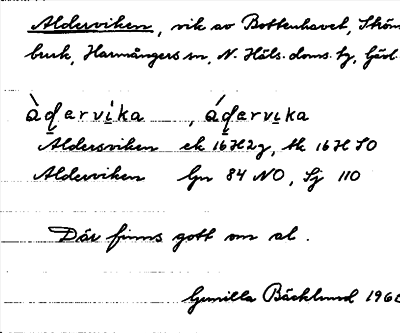 Alderviken, vik av Bottenhavet, Ström
buck, Harmångers sn, N. Häls. doms. tg, Gävl.
àḏ̣ạrvịka, áḏ̣ạrvịka
Aldersviken ek 16H2g, tk 16H SO
Alderviken Gn 84 NO, Sj 110
Där finns gott om al.
Gunilla Bäcklund 196